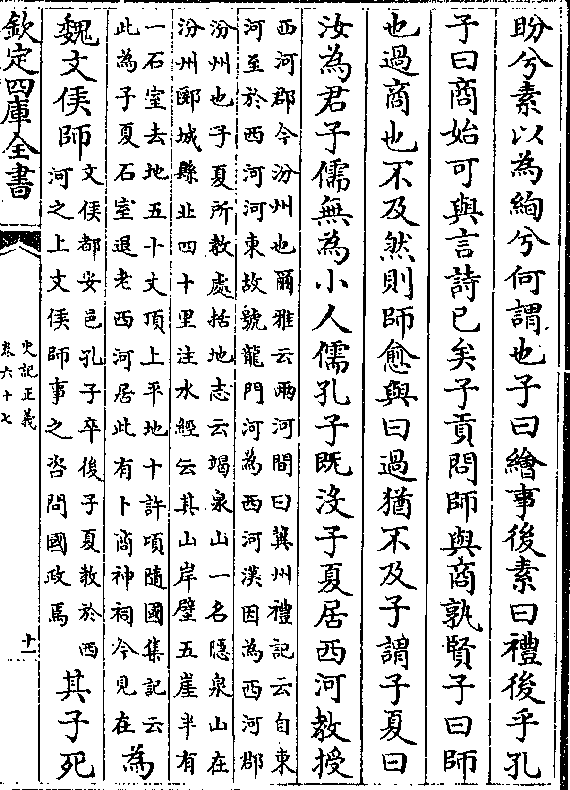 盼兮素以為絢兮何謂也子曰繪事後素曰禮後乎孔
子曰商始可與言詩已矣子貢問師與商孰賢子曰師
也過商也不及然則師愈與曰過猶不及子謂子夏曰
汝為君子儒無為小人儒孔子既沒子夏居西河教授
西河郡今汾州也爾雅云兩河間曰冀州禮記云自東
河至於西河河東故號龍門河為西河漢因為西河郡
汾州也子夏所教處括地志云謁泉山一名隱泉山在
汾州隰城縣北四十里注水經云其山岸壁五崖半有
一石室去地五十丈頂上平地十許頃隨國集記云
此為子夏石室退老西河居此有卜商神祠今見在
為
魏文侯師
文侯都安邑孔子卒後子夏教於西
河之上文侯師事之咨問國政焉
其子死
欽定四庫全書
史記正義
卷六十七
十一